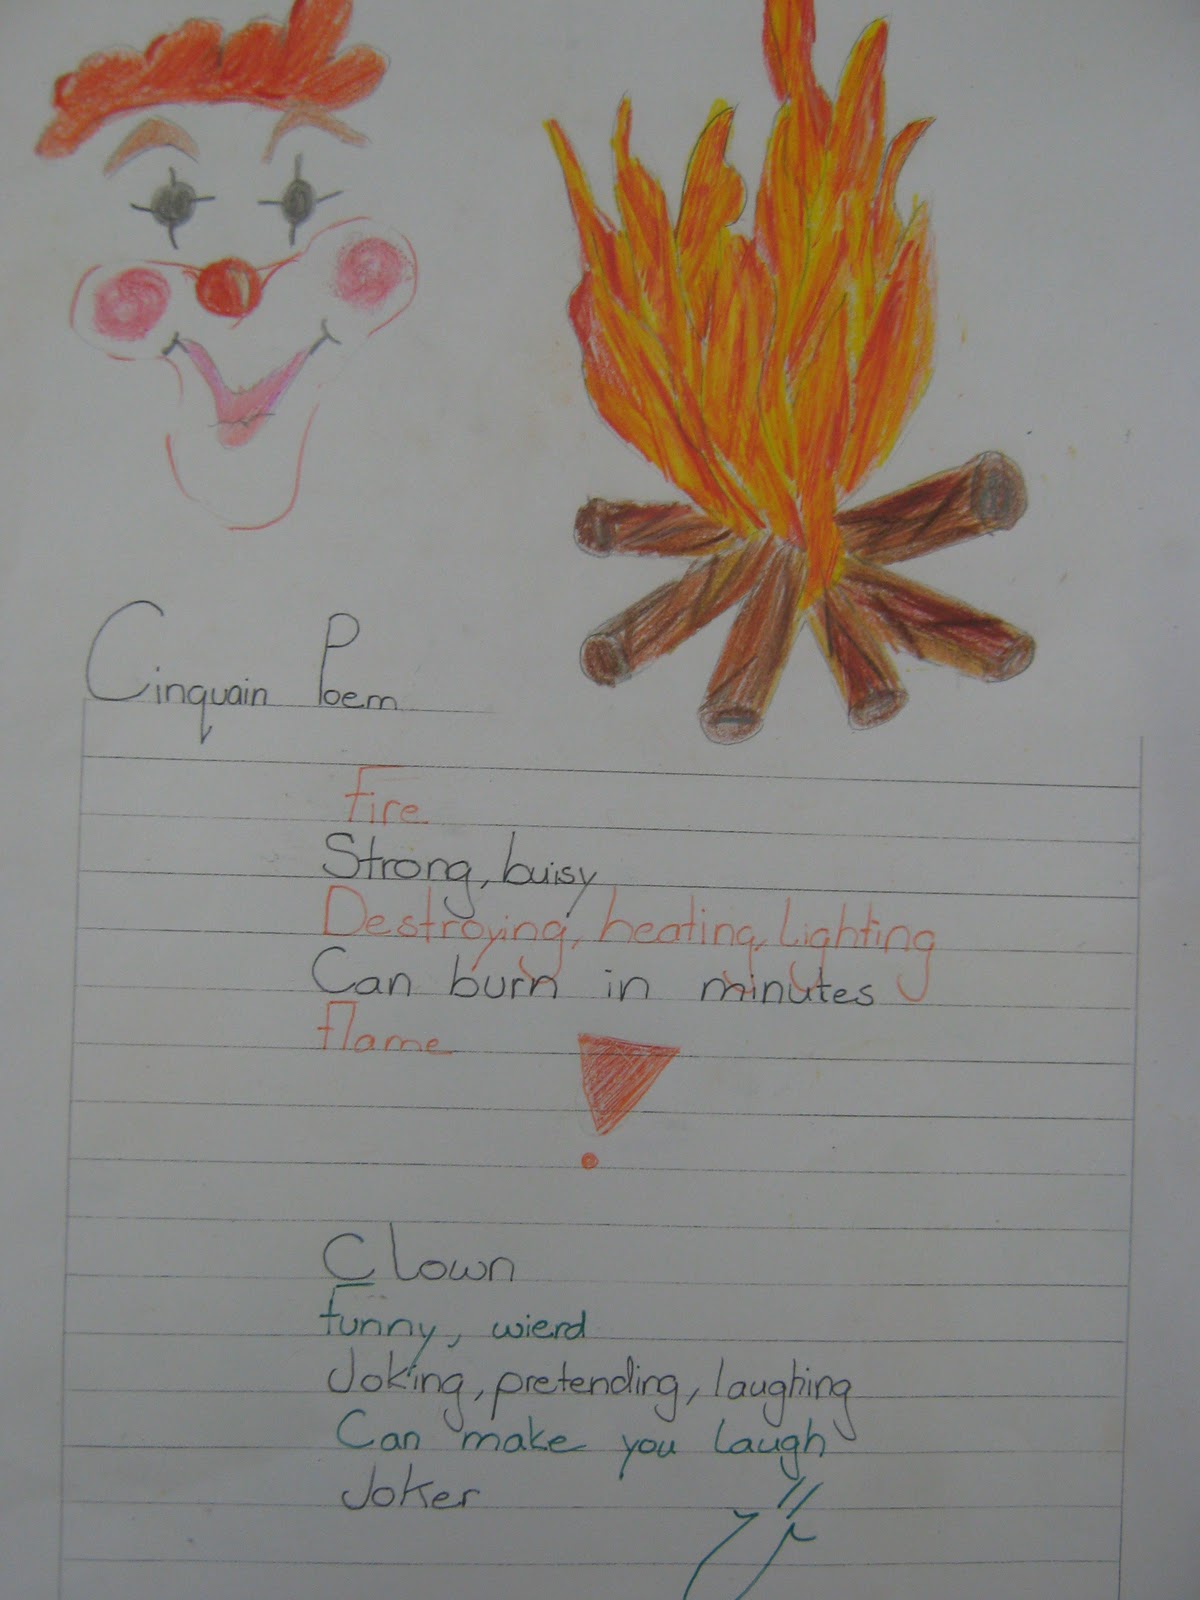 Cinquain Poem
Fire
Strong, buisy
Destroying, heating, Lighting
Can burn in minutes
flame
Clown
funny, wierd
Joking, pretending, laughing
Can make you laugh
Joker